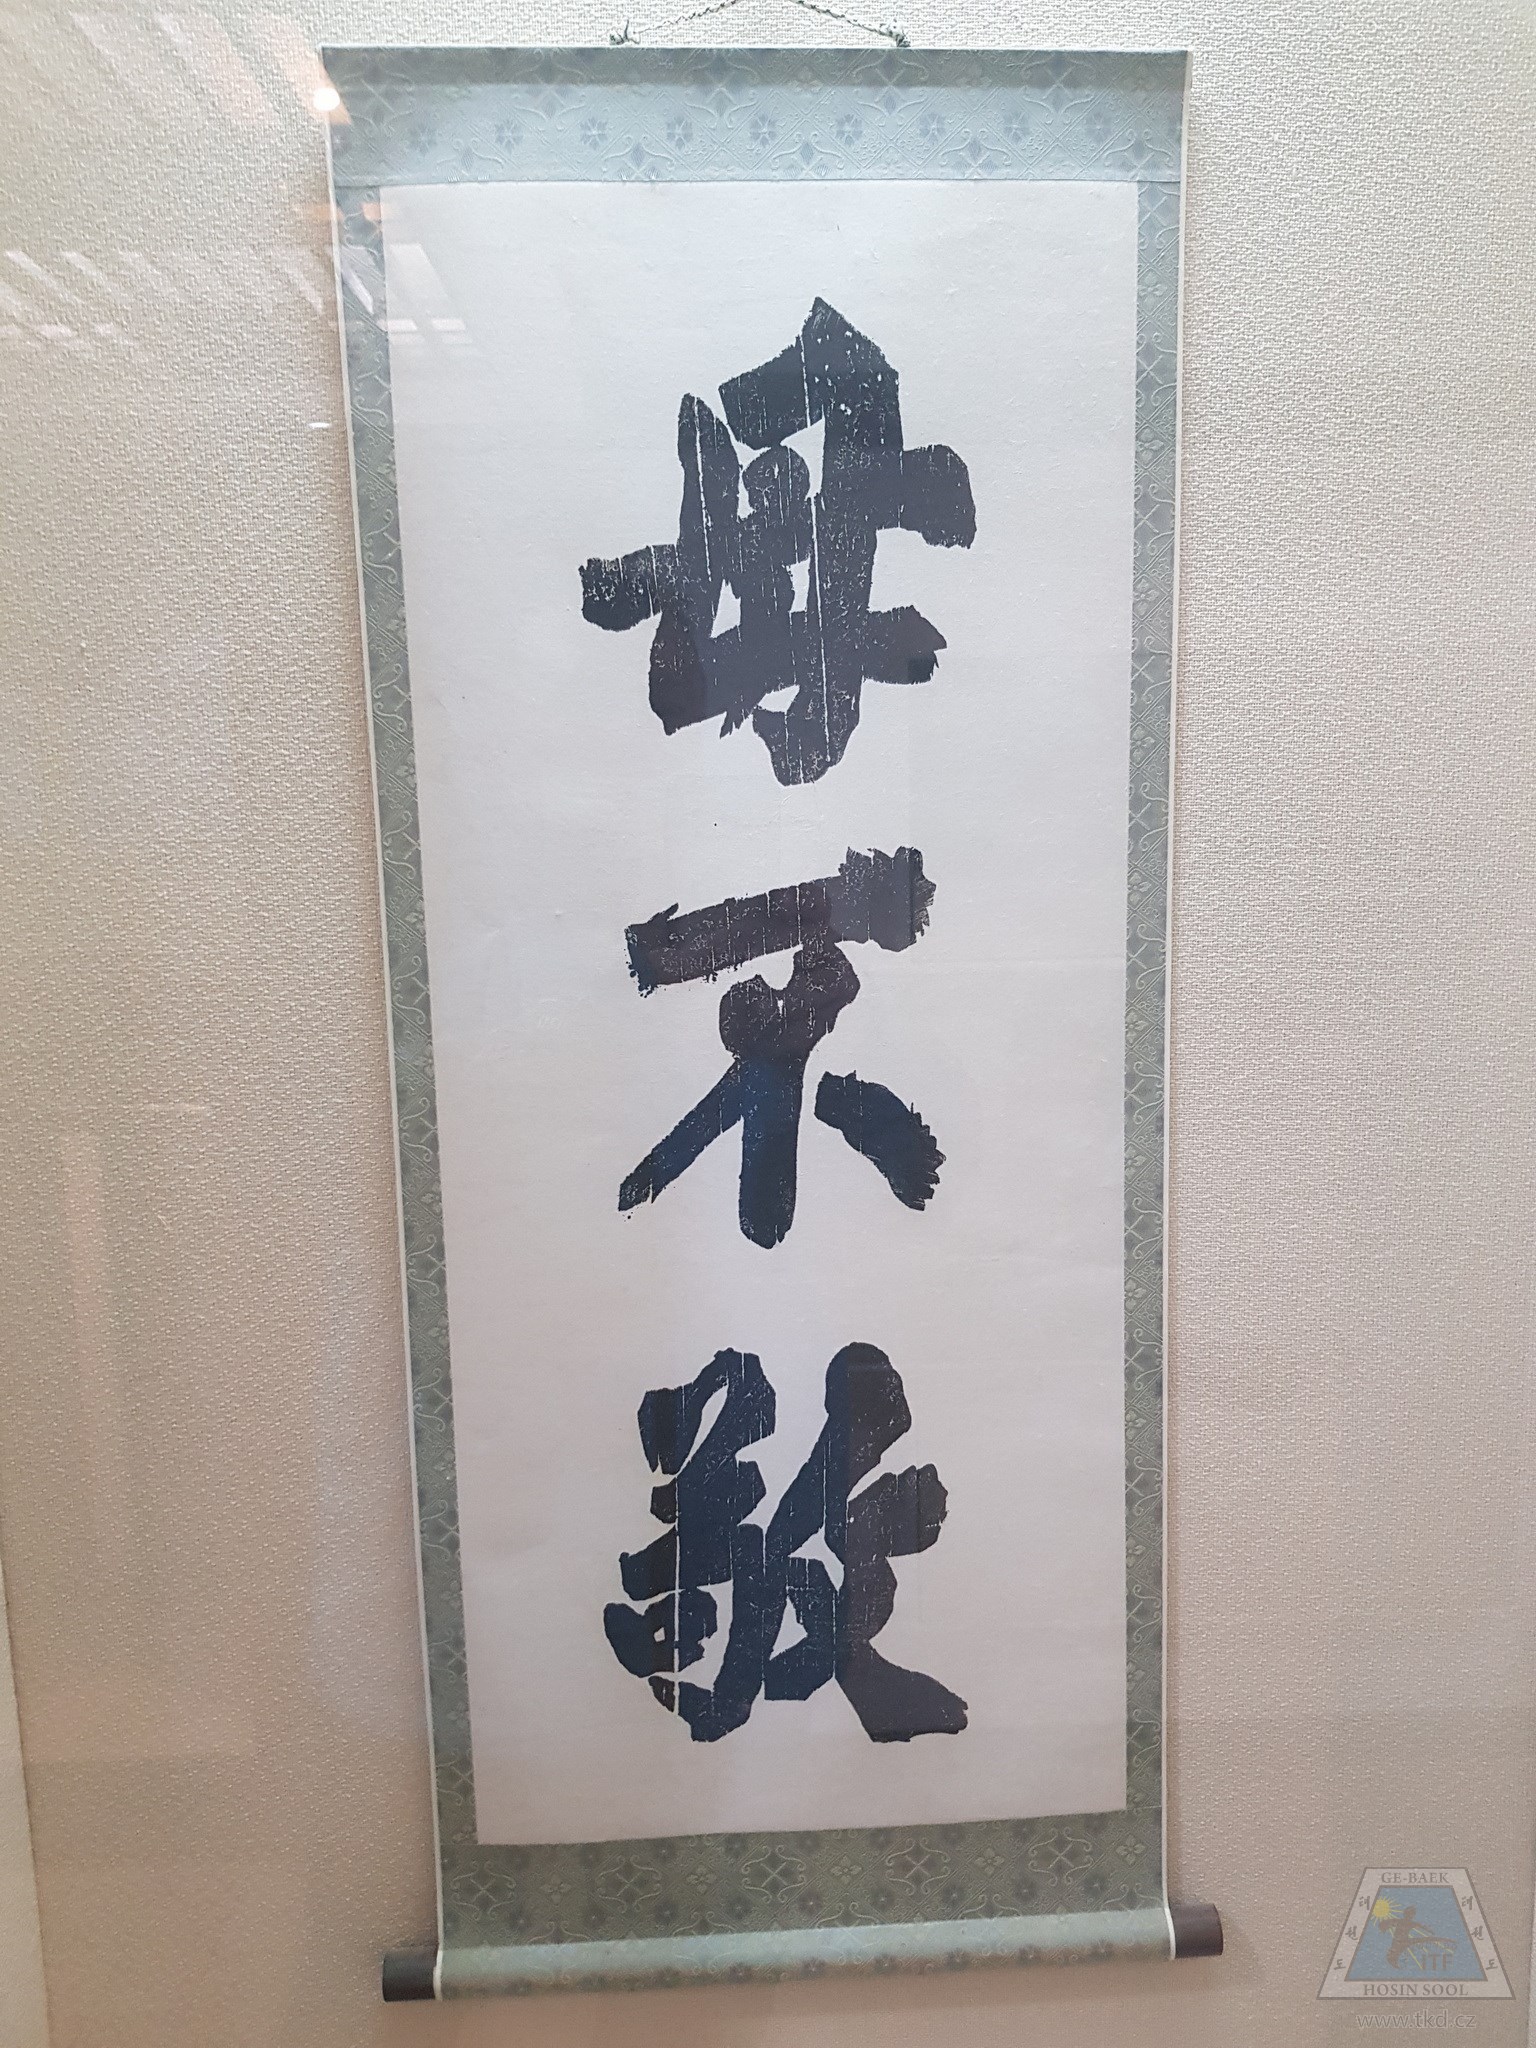 毋不敬
GE-BAEK
태권도
태권도
ITF
HOSIN SOOL
www.tkd.cz